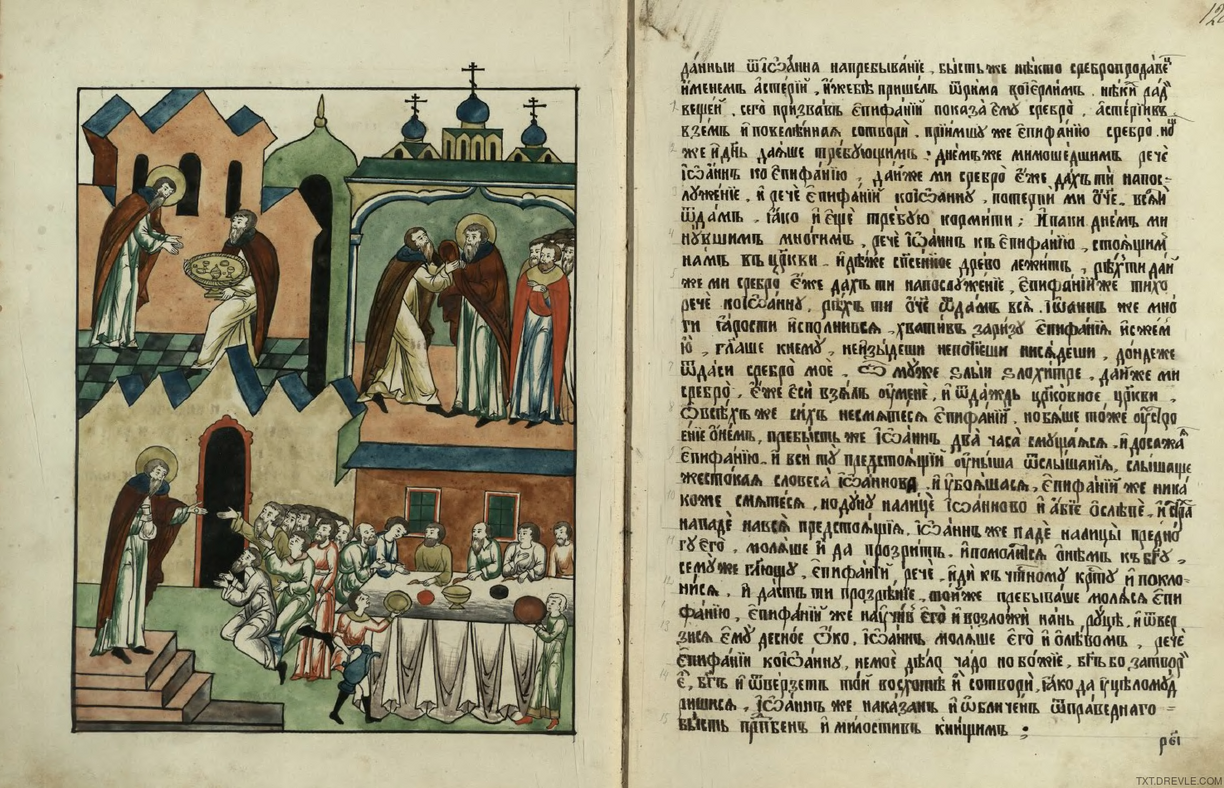 12
да́нныи ѿ іѡа́нна напребыва́нїе , бы́сть же нѣ́кто сребропрода́ве
и́менемъ а҆стері́й , и҆́же бѣ̀ прише́лъ ѿ ри́ма во і҆ерⷭ҇ли́мъ . нѣ́ки ра́д
веще́й . сего̀ призва́въ є҆пифа́нїй показа̀ є҆мꙋ̀ сребро̀ , а҆сте́рїй въ
взе́мъ и҆ повелѣ́нная сотворѝ . прїи́мшꙋ же є҆пифа́нїю сребро̀
же и҆ дн҃ь даѧ́ше тре́бꙋющимъ : дне́мъ же мимоше́дшимъ речѐ
і҆ѡа́ннъ ко є҆пифа́нїю , да́йже ми сребро̀ є҆́же да́хъ ти напос-
лꙋже́нїе . и҆ речѐ є҆пифа́нїй ко і҆ѡа́ннꙋ , потерпи́ ми ѻ҆́тче . всѧ̀
ѿда́мъ , ꙗ҆́ко и҆ є҆щѐ тре́бꙋю корми́ти ; И҆ па́ки дне́мъ ми
нꙋ́вшимъ мно́гимъ , речѐ і҆ѡа́ннъ къ є҆пифа́нїю , стоѧ́щим
на́мъ въ цр҃кви . и҆дѣ́же сп҃се́нное дре́во лежи́тъ , рѣ́хъ ти да́й
же ми сребро̀ є҆́же да́хъ ти напослꙋже́нїе , є҆пифа́нїй же ти́хо
речѐ ко і҆ѡа́ннꙋ , рѣ́хъ ти ѻ҆́ч҃е ѿда́мъ всѧ̀ . і҆ѡа́ннъ же мно́
ги ꙗ҆́рости и҆спо́лнивсѧ , хвати́въ за ри́зꙋ є҆пифа́нїѧ и҆ сже́м
ю҆̀ , гл҃аше к немꙋ̀ , не и҆зы́деши не почі́еши ни сѧ́деши , до́ндеже
ѿда́си сребро̀ моѐ . ѽ мꙋ́же ѕлы́и ѕлохи́тре , да́йже ми
сребро̀ , є҆́же є҆сѝ взѧ́лъ ᲂу҆ менѐ , и҆ ѿда́ждь цр҃ко́вное цр҃кви .
ѡ҆ всѣ́хъ же си́хъ несмѧте́сѧ є҆пифа́нїй . но бѧ́ше то́же
є҆́нїе ѻ҆ не́мъ , пребы́сть же і҆ѡа́ннъ два̀ часа̀ смꙋща́ѧсѧ . и҆ досажа́ѧ
є҆пифа́нїю . и҆ всѝ тꙋ̀ предстоѧ́щїи ᲂу҆ны́ша ѿ слы́шанїѧ , слы́шаще
жесто́каѧ словеса̀ і҆ѡа́ннова , и҆ ᲂу҆боѧ́шасѧ , є҆пифа́нїй же ника́
коже смѧте́сѧ , но дꙋ́нꙋ на лицѐ і҆ѡа́нново и҆ а҆́бїе ѻ҆слѣ́пе , и҆ стра
нападѐ на всѧ̀ предстоѧ́щїѧ . і҆ѡа́ннъ же падѐ на лицы̀ пред но́
гꙋ є҆гѡ̀ . молѧ́ше и҆ да прозри́тъ . и҆ помо́литсѧ ѻ҆ не́мъ къ бг҃ꙋ ,
семꙋ́ же гл҃ющꙋ , є҆пифа́нїй речѐ , и҆дѝ къ чⷭ҇тно́мꙋ крⷭ҇тꙋ̀ и҆ покло-
ни́сѧ , и҆ да́стъ ти прозрѣ́нїе . то́й же пребыва́ше молѧ́сѧ є҆пи
фа́нїю , є҆пифа́нїй же наꙋчи́въ є҆го̀ и҆ возложѝ на́нь рꙋ́цѣ . и҆ ѿвер
зи́сѧ є҆мꙋ̀ десно́е ѻ҆́ко . і҆ѡа́ннъ молѧ́ше є҆го̀ и҆ ѻ҆ лѣ́вомъ , речѐ
є҆пифа́нїи ко і҆ѡа́ннꙋ , не моѐ дѣ́ло ча́до но бо́жїе , бг҃ъ бо затвори
є҆̀ , бг҃ъ и҆ ѿве́рзетъ то́й восхо́тѣ и҆ сотворѝ , ꙗ҆́ко да ᲂу҆цѣломꙋ́д
ришисѧ . і҆ѡа́ннъ же нака́занъ и҆ ѡ҆бличе́нъ ѿ пра́веднаго
бы́сть прпⷣбенъ и҆ ми́лостивъ к ни́щимъ :
рє҃і
TXT.DREVLE.COM